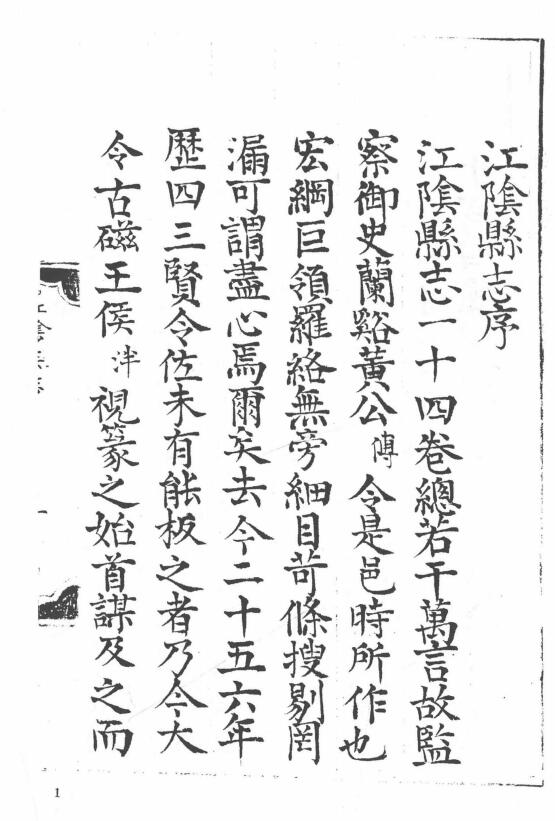 江陰縣志序
江陰縣志一十四卷總若干萬言故監
察御史蘭谿黃公傅令是邑時所作也
宏綱巨領羅絡無旁細目苛條搜剔罔
漏可謂盡心焉爾矣去今二十五六年
歷四三賢令佐未有能板之者乃今大
令古磁王侯泮視篆之始首謀及之而
1